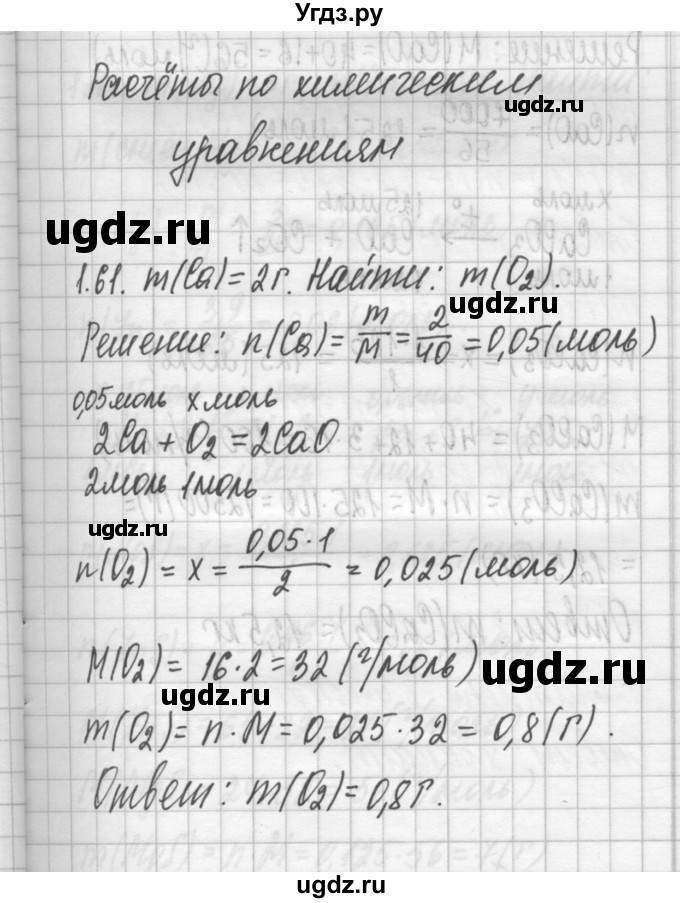 Угдз.ру
Расчёты по химическим
уравнениям
ugdz.ru
1.61. m(Ca)=2г. Найти: m(O₂).
ugdz.ru
Решение: n(Ca)= m/M = 2/40 = 0,05(моль)
0,05моль x моль
2Ca + O₂ = 2CaO
2моль 1моль
ugdz.ru
n(O₂) = x = 0,05·1/2 = 0,025(моль)
M(O₂)= 16·2=32 (г/моль)
ugdz.ru
ugdz.ru
m(O₂)= n·M=0,025·32 = 0,8(г).
Ответ: m(O₂)=0,8г.
ugdz.ru
ugdz.ru